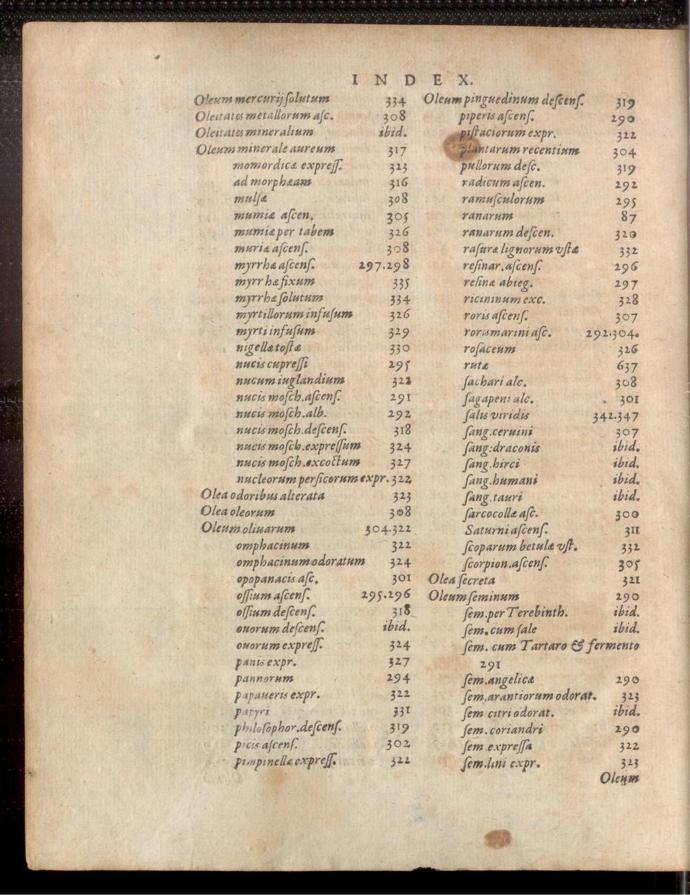 INDEX.
Oleum mercurij ſolutum 334
Oleitates metallorum aſc. 308
Oleitates mineralium ibid.
Oleum minerale aureum 317
momordicæ expreſſ. 323
ad morphæam 316
mulſæ 308
mumiæ aſcen. 305
mumiæ per tabem 326
muriæ aſcenſ. 308
myrrhæ aſcenſ. 297.298
myrrhæ fixum 335
myrrhæ ſolutum 334
myrtillorum infuſum 326
myrti infuſum 329
nigellæ toſtæ 330
nucis cupreſſi 295
nucum iuglandium 322
nucis moſch.aſcenſ. 291
nucis moſch.alb. 292
nucis moſch.deſcenſ. 318
nucis moſch.expreſſum 324
nucis moſch.excoctum 327
nucleorum perſicorum expr. 322
Olea odoribus alterata 323
Olea oleorum 308
Oleum oliuarum 304.322
omphacinum 322
omphacinum odoratum 324
opopanacis aſc. 301
oſſium aſcenſ. 295.296
oſſium deſcenſ. 318
ouorum deſcenſ. ibid.
ouorum expreſſ. 324
panis expr. 327
pannorum 294
papaueris expr. 322
papyri 331
philoſophor.deſcenſ. 319
picis aſcenſ. 302
pimpinellæ expreſſ. 322
Oleum pinguedinum deſcenſ. 319
piperis aſcenſ. 290
piſtaciorum expr. 322
plantarum recentium 304
pullorum deſc. 319
radicum aſcen. 292
ramuſculorum 295
ranarum 87
ranarum deſcen. 320
raſuræ lignorum vſtæ 332
reſinar.aſcenſ. 296
reſinæ abieg. 297
ricininum exc. 328
roris aſcenſ. 307
rorismarini aſc. 292.304.
roſaceum 326
rutæ 637
ſachari alc. 308
ſagapeni alc. 301
ſalis viridis 342.347
ſang.ceruini 307
ſang:draconis ibid.
ſang.hirci ibid.
ſang.humani ibid.
ſang.tauri ibid.
ſarcocollæ aſc. 300
Saturni aſcenſ. 311
ſcoparum betulæ vſt. 332
ſcorpion.aſcenſ. 305
Olea ſecreta 321
Oleum ſeminum 290
ſem.per Terebinth. ibid.
ſem.cum ſale ibid.
ſem. cum Tartaro & fermento
291
ſem.angelicæ 290
ſem.arantiorum odorat. 323
ſem citri odorat. ibid.
ſem.coriandri 290
ſem expreſſa 322
ſem.lini expr. 323
Oleum